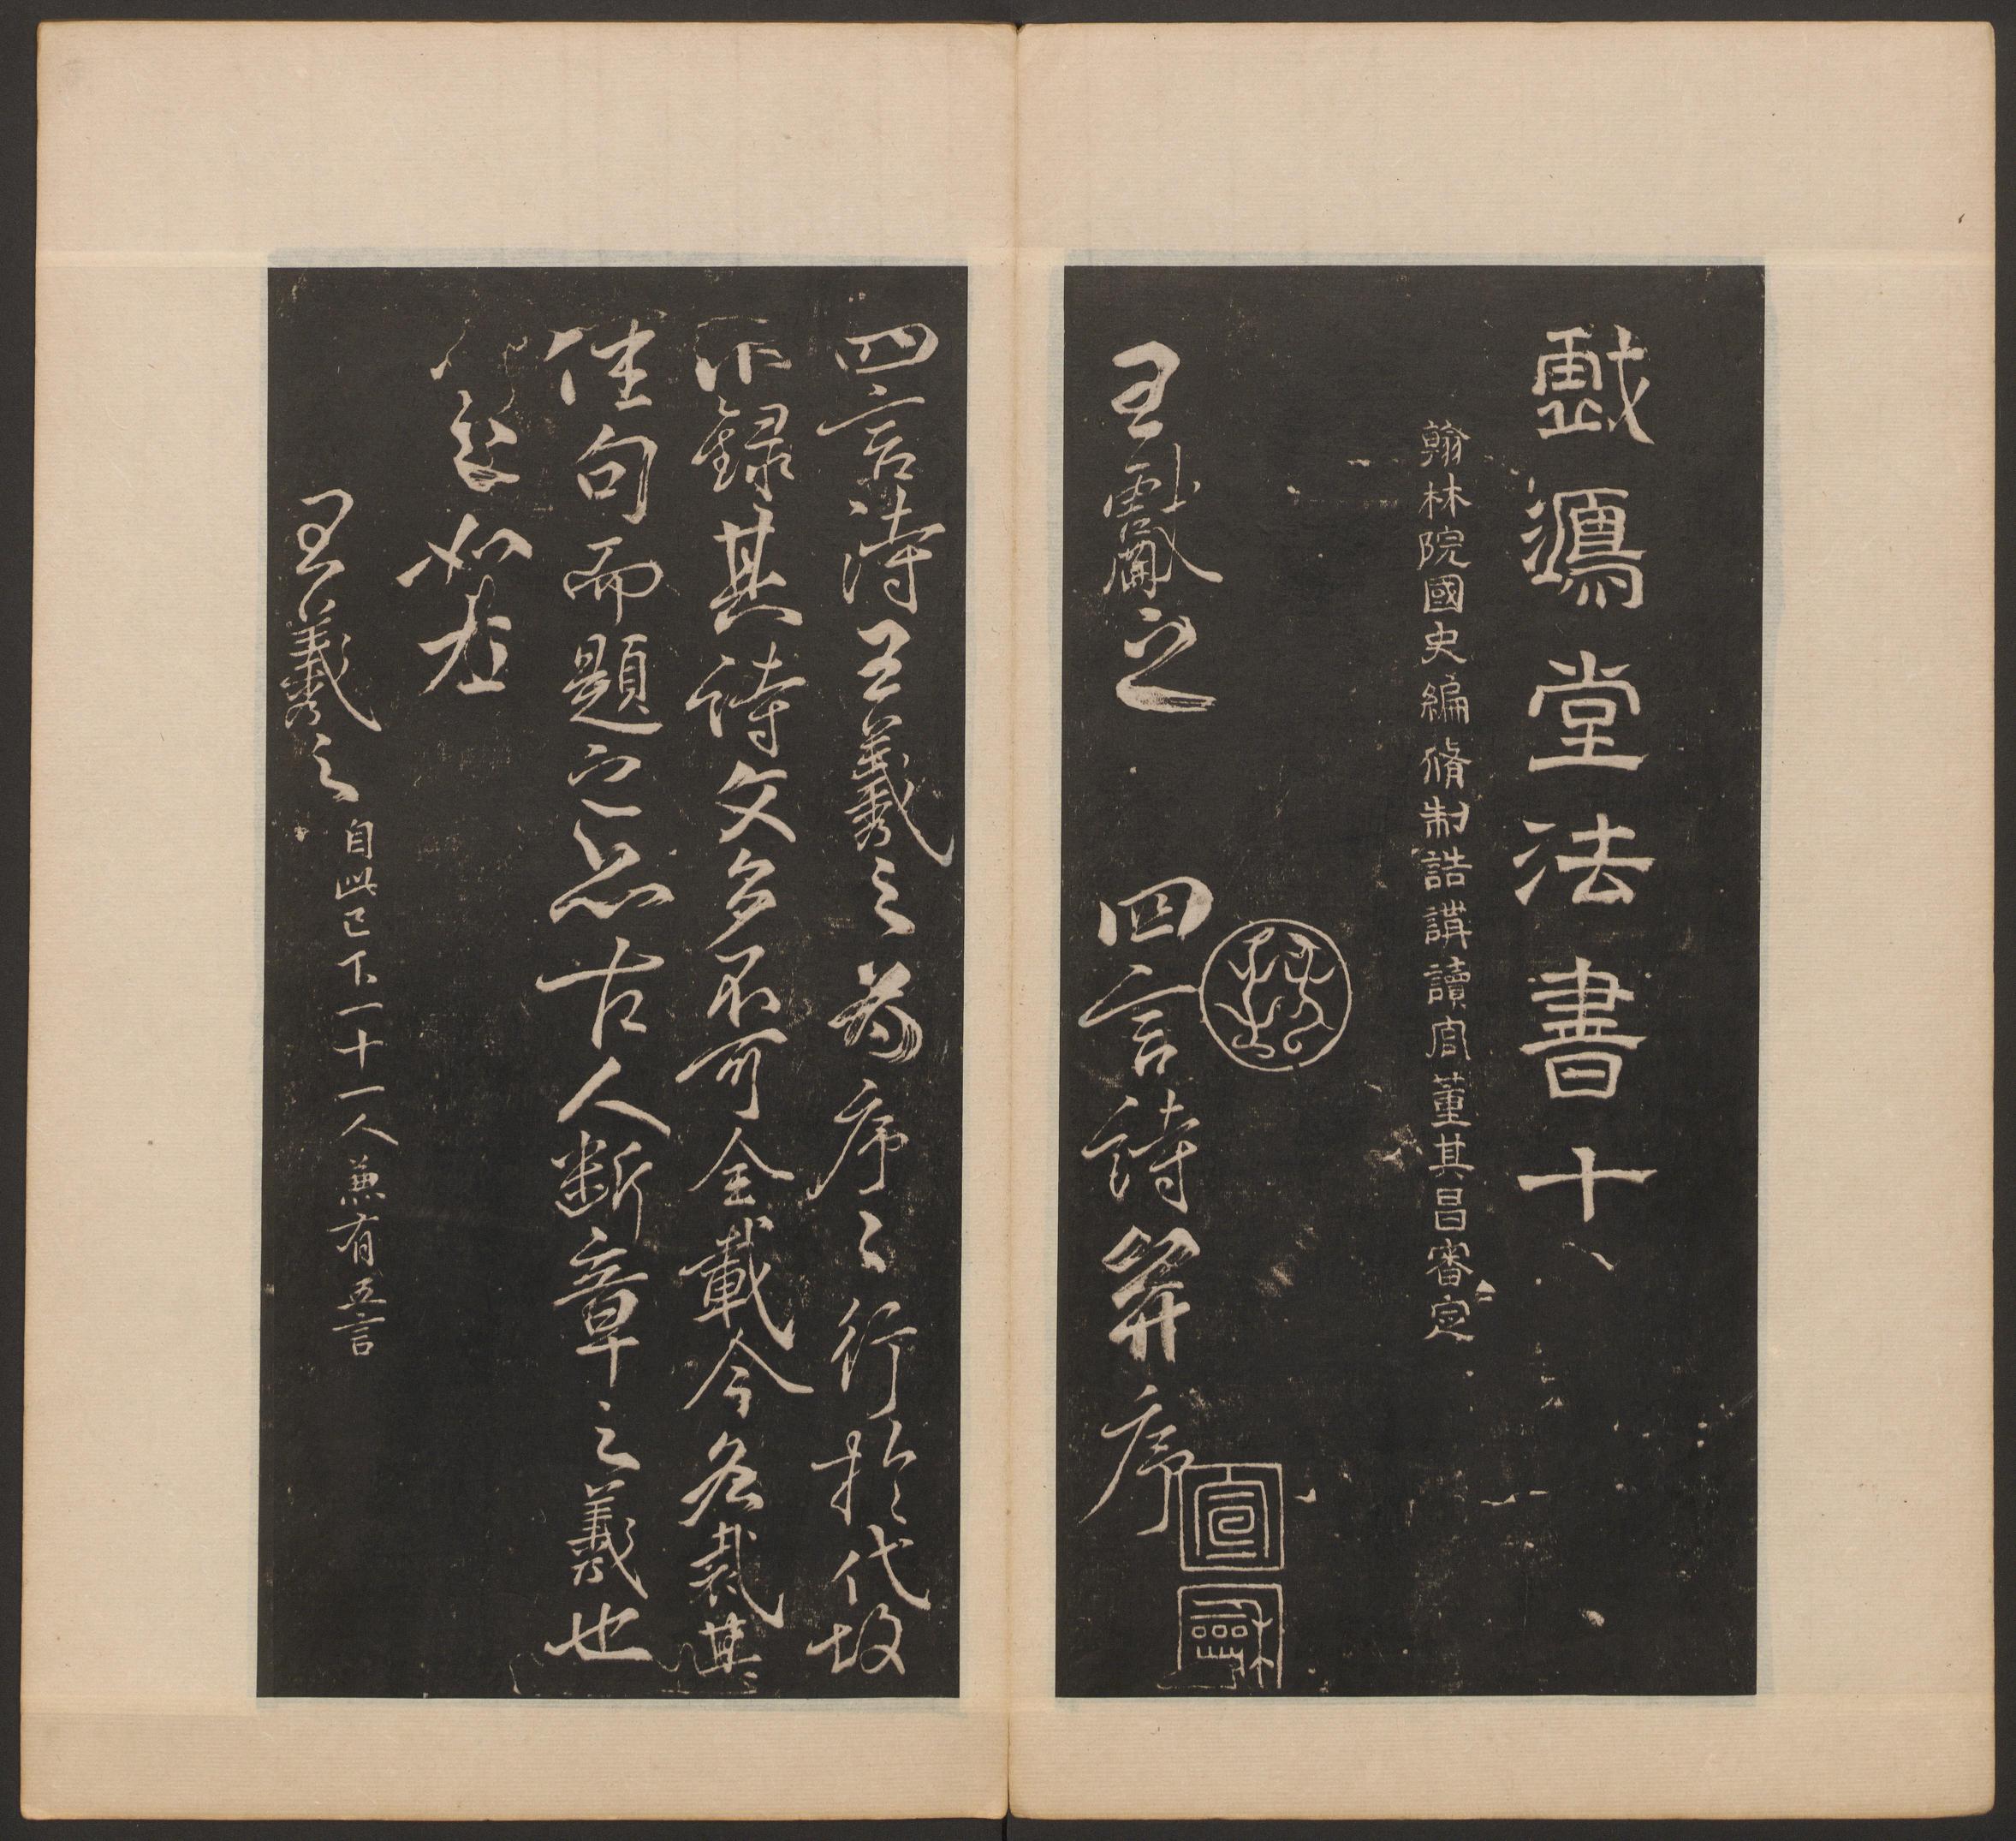 戲鴻堂法書十八
翰林院國史編脩制誥講讀官董其昌審定
王獻之 四言詩并序
四言詩王羲之為序序行於代故
不錄其詩文多不可全載今各裁其
佳句而題之亦古人斷章之義也
如左
王羲之 自此已下一十一人兼有五言
宣